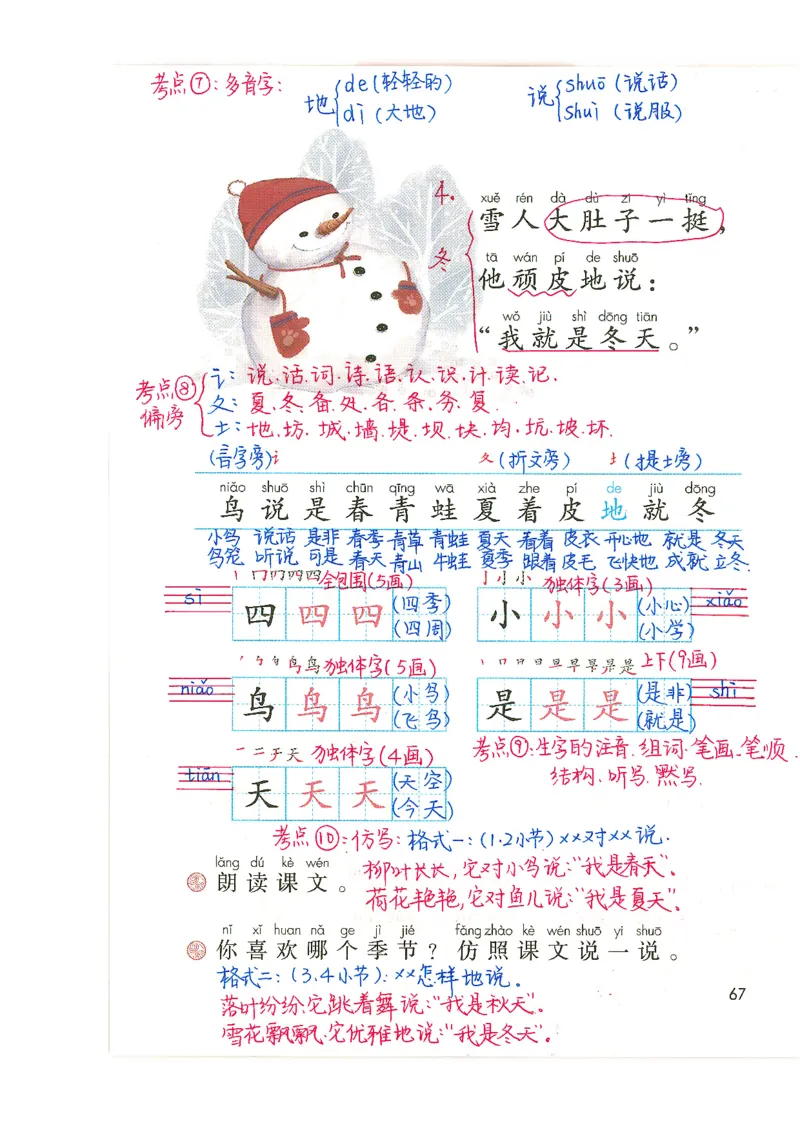 考点⑦:多音字: 地{de(轻轻的) 说{shuō(说话)
dì(大地) shuì(说服)
4.
xuě rén dà dù zi yì tǐng
雪人大肚子一挺，
冬
tā wán pí de shuō
他顽皮地说：
wǒ jiù shì dōng tiān
“我就是冬天。”
考点⑧ 偏旁
讠: 说.话.词.诗.语.认.识.计.读.记.
夂: 夏.冬.备.处.各.条.务.复.
土: 地.坊.城.墙.堤.坝.块.均.坑.坡.坏.
(言字旁)讠 夂(折文旁) 土(提土旁)
niǎo shuō shì chūn qīng wā xià zhe pí de jiù dōng
鸟说是春青蛙夏着皮地就冬
小鸟 说话 是非 春季 青草 青蛙 夏天 看着 皮衣 开心地 就是 冬天
鸟笼 听说 可是 春天 青山 牛蛙 夏季 跟着 皮毛 飞快地 成就 立冬.
全包围(5画) 独体字(3画)
sì 四 四 四 (四季) 小 小 小 (小心) xiǎo
(四周) (小学)
独体字(5画) 上下(9画)
niǎo 鸟 鸟 鸟 (小鸟) 是 是 是 (是非) shì
(飞鸟) (就是)
一二于天 独体字(4画) 考点⑨:生字的注音.组词.笔画.笔顺.
tiān 天 天 天 (天空) 结构.听写.默写.
(今天)
考点⑩:仿写:格式一:(1.2小节)××对××说.
lǎng dú kè wén 柳叶长长,它对小鸟说:“我是春天”.
朗读课文。 荷花艳艳,它对鱼儿说:“我是夏天”.
nǐ xǐ huan nǎ ge jì jié fǎng zhào kè wén shuō yi shuō
你喜欢哪个季节？仿照课文说一说。
格式二:(3.4小节):××怎样地说.
落叶纷纷,它跳着舞说:“我是秋天”.
67
雪花飘飘,它优雅地说:“我是冬天”.